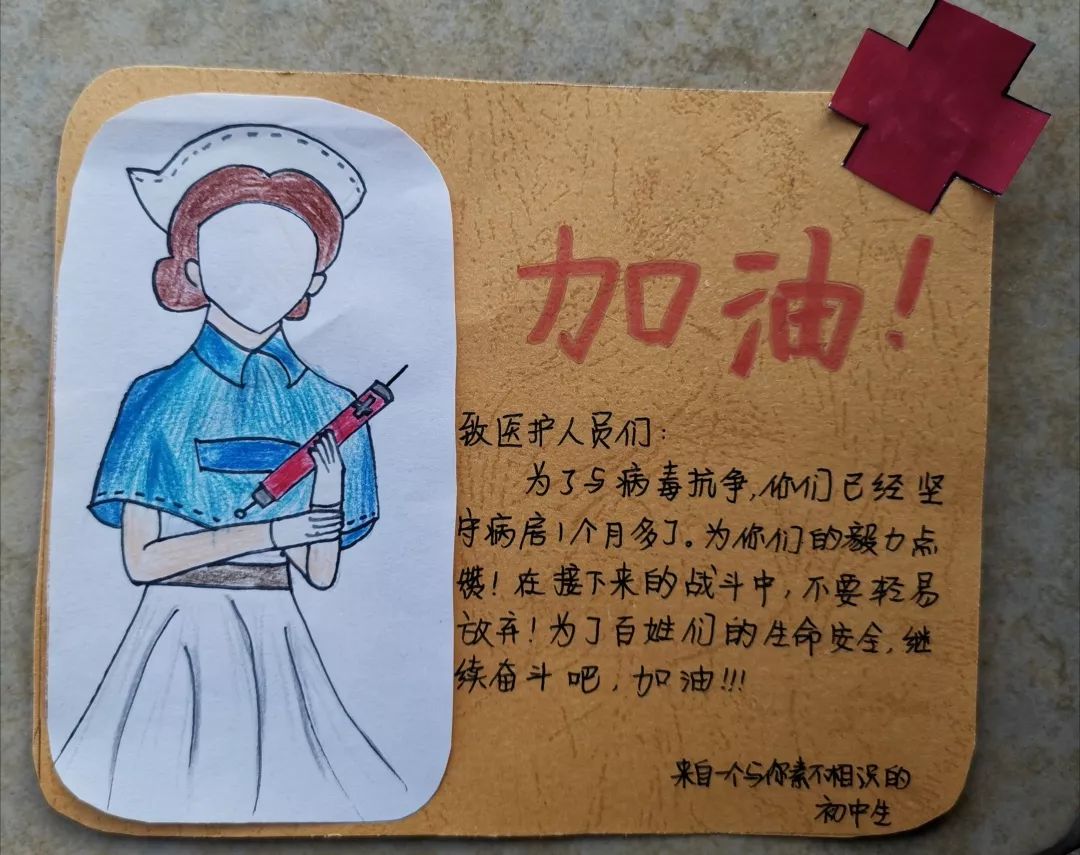 加油!
致医护人员们:
为了与病毒抗争,你们已经坚
守病房1个月多了。为你们的毅力点
攒!在接下来的战斗中,不要轻易
放弃!为了百姓们的生命安全,继
续奋斗吧,加油!!!
来自一个与你素不相识的
初中生